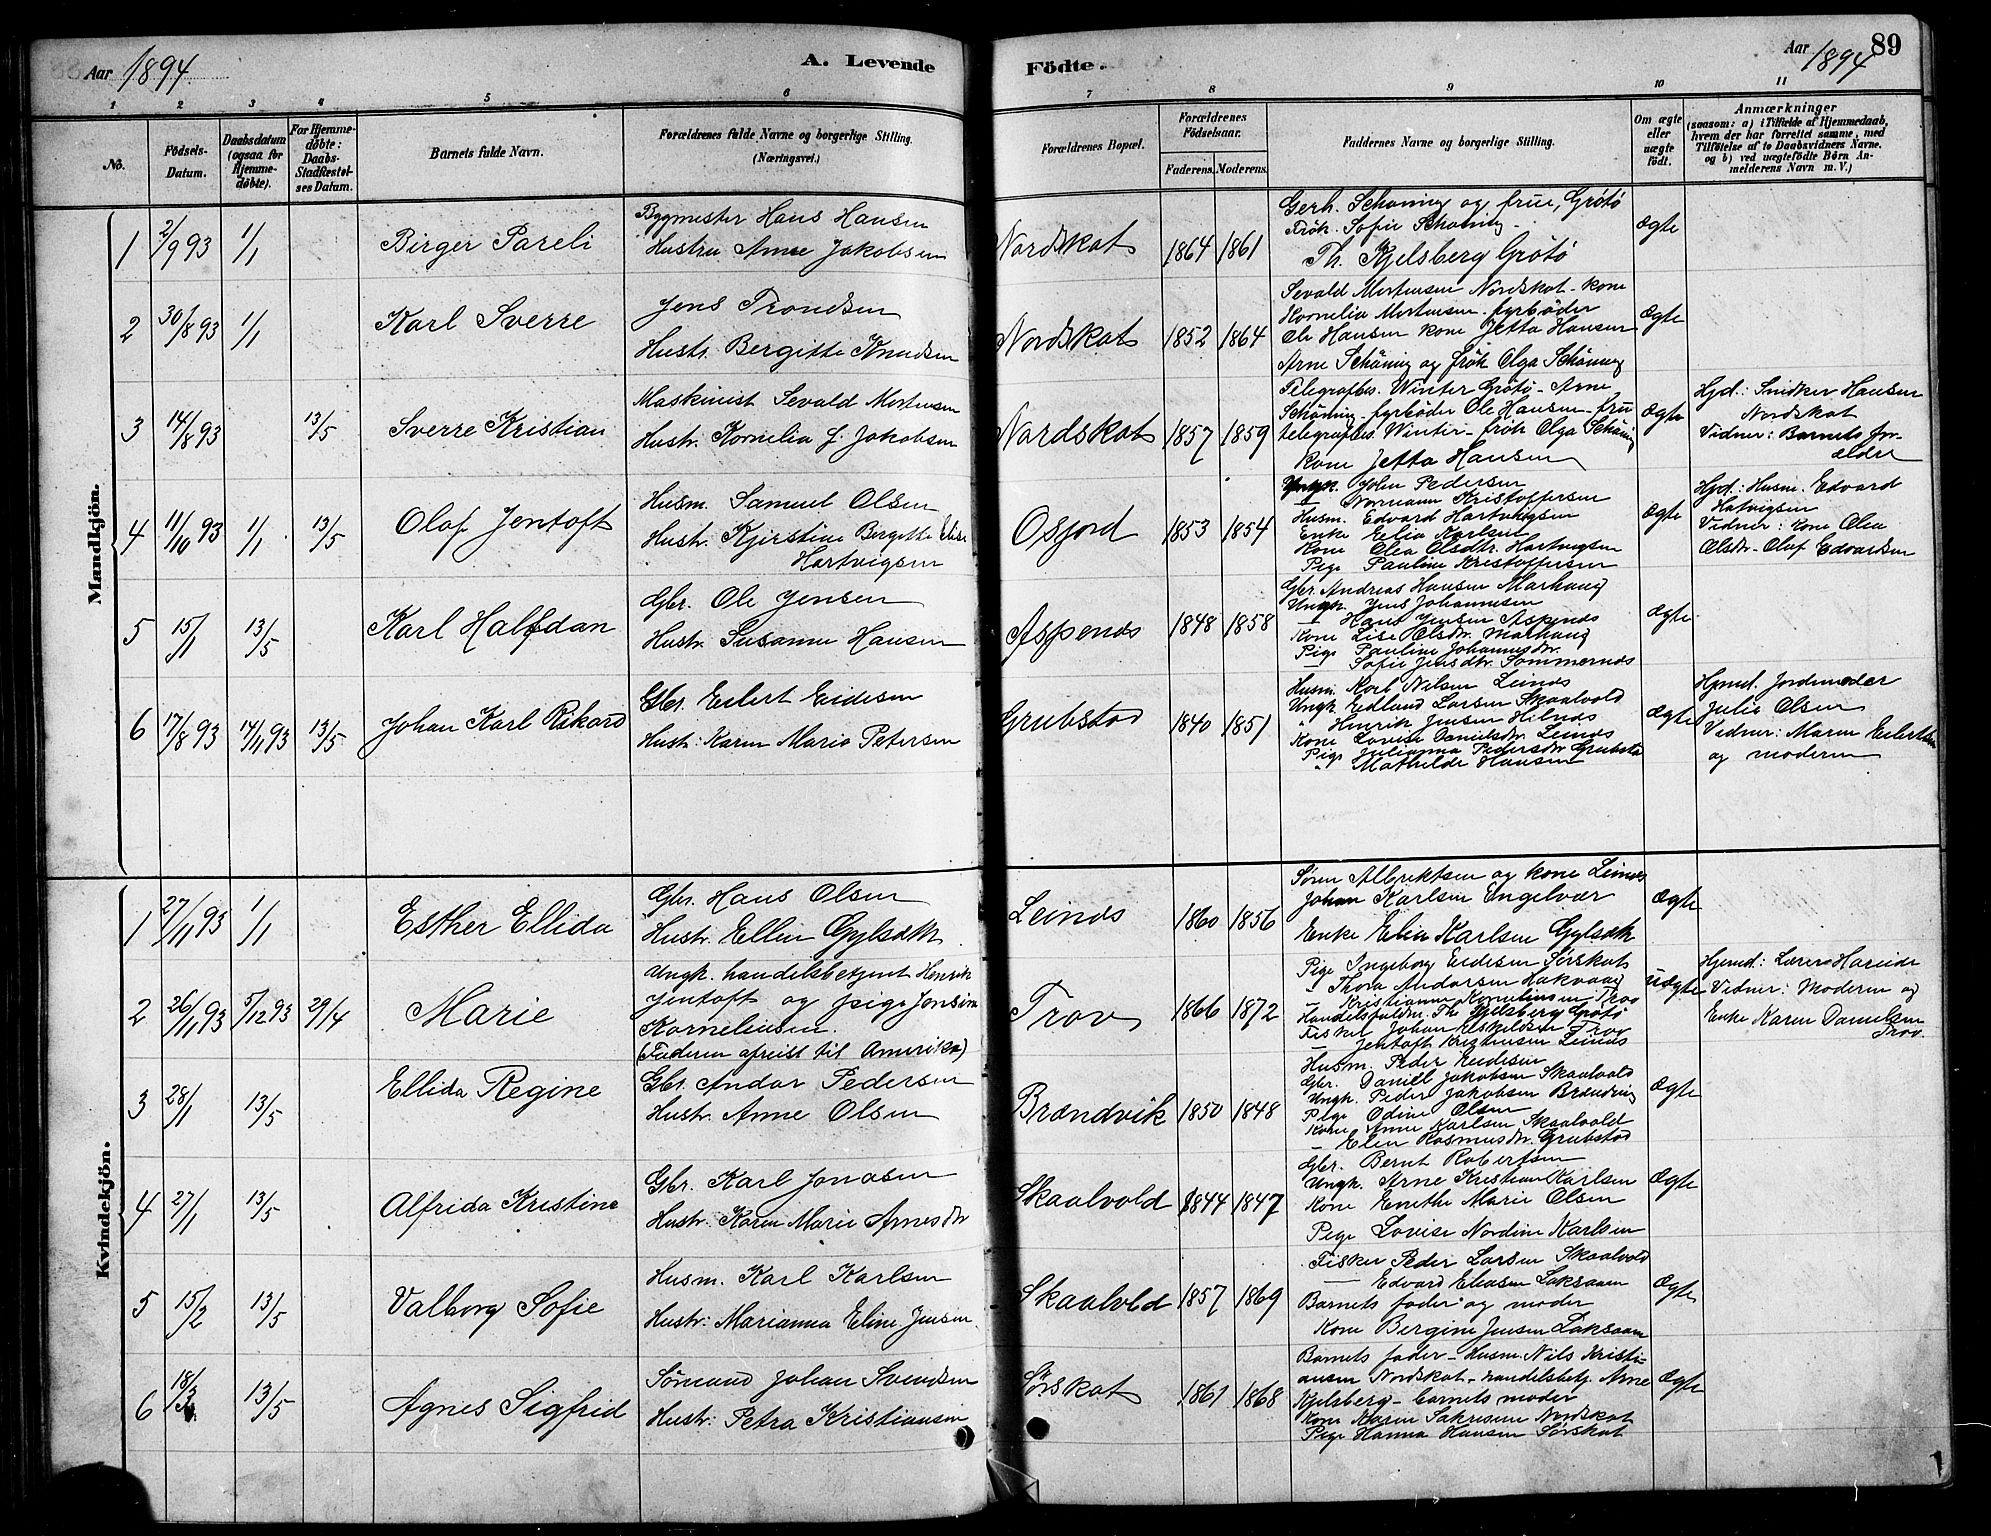 Aar 1894
A. Levende
Födte.
Aar 1894
89
1 2 3 4 5 6 7 8 9 10 11
No.
Födsels-
Datum.
Daabsdatum
(ogsaa for
Hjemme-
døbte).
For Hjemme-
døbte:
Daabs-
Stadfæstel-
ses Datum.
Barnets fulde Navn.
Forældrenes fulde Navne og borgerlige Stilling.
(Næringsvei.)
Forældrenes Bopæl.
Forældrenes
Födselsaar.
Faderens. Moderens.
Faddernes Navne og borgerlige Stilling.
Om ægte
eller
uægte
födt.
Anmærkninger
(saasom: a) i Tilfælde af Hjemmedaab,
hvem der har forrettet samme, med
Tilføielse af to Daabsvidners Navne.
og b) ved uægtefödte Börn An-
melderens Navn m.V.)
Mandkjön.
1 2/9 93 1/1 Birger Pareli
Bygmester Hans Hansen
Hustru Anne Jakobsen
Nordskot 1864 1861
Gerh. Schøning og frue, Grøtø
Frøk. Sofie Schøning
Th. Kjelsberg Grøtø
Ægte
2 30/8 93 1/1 Karl Sverre
Jens Trondsen
Hustr. Bergitte Knudsen
Nordskot 1852 1864
Sevald Mortensen Nordskot - kone
Kornelia Mortensen - fyrbøder
Ole Hansen kone Jetta Hansen
Arne Schöning og frøk Olga Schöning
Ægte
3 14/8 93 13/5 Sverre Kristian
Maskinist Sevald Mortensen
Hustr. Kornelia J. Jakobsen
Nordskot 1857 1859
Telegrafbes. Winter Grøtø - Arne
Schöning - fyrbøder Ole Hansen - fru
telegrafbes. Winter - frøk Olga Schöning
kone Jetta Hansen
Ægte
Hjd: Snedker Hansen
Nordskot
Vidner: Barnets for-
ældre
4 11/10 93 1/1 13/5 Olaf Jentoft
Husm. Samuel Olsen
Hustr. Kjerstine Bergitte Elise
Hartvigsen
Osfjord 1853 1854
Ungk. John Pedersen
Normann Kristoffersen
Husm. Edvard Hartvigsen
Enke Elia Karlsen
Kone Olea Olsdtr. Hartvigsen
Pige Pauline Kristoffersen
Ægte
Hjd: Husm. Edvard
Hatvigsen
Vidner: kone Olea
Olsdr. Olaf Edvardsen
5 15/1 13/5 Karl Halfdan
Gbr. Ole Jensen
Hustr. Susanne Hansen
Aspenæs 1848 1858
Gbr. Andreas Hansen Marhaug
Ungk. Jens Johannesen
— Hans Jensen Aspenæs
Kone Lise Olsdtr. Marhaug
Pige Pauline Johannesdtr.
— Sofie Jensdtr. Sommernæs
Ægte
6 17/8 93 14/11 93 13/5 Johan Karl Rikard
Gbr. Eilert Eidesen
Hustr: Karen Maria Petersen
Grubstad 1840 1851
Husm. Karl Nilsen Leinæs
Ungk. Edlund Larsen Skaalvold
" Henrik Jensen Hilnæs
Kone Lovise Danielsdtr. Leinæs
Pige Julianna Pedersdtr Grubstø
" Mathilde Hansen
Ægte
Hjemd. Jordemoder
Julie Olsen
Vidner: Maren Eilertsen
og moderen
Kvindekjön.
1 27/11 93 1/1 Esther Ellida
Gbr. Hans Olsen
Hustr. Ellen Gylseth
Leinæs 1860 1856
Søren Albriktsen og kone Leines
Johan Karlsen Engelvær
Enke Elen Karlsen Gylseth
Ægte
2 26/11 93 5/12 93 29/4 Marie
Ungk. handelsbetjent Henrik
Jentoft og pige Jonsine
Korneliusen.
(Faderen afreist til Amerika)
Trov 1866 1872
Pige Ingeborg Eidesen Sørskot
— Thora Andorsen Hakvaag
— Kristianna Korneliusen Trov
Handelsfuldm. Th Kjelsberg Grøtø
Fisker Johan Eskildsen Trov
Jentoft Kristensen Leinæs
Uægte
Hjemd: Lærer Hareide
Vidner: Moderen og
Enke Karen Danielsen
Trov.
3 28/1 13/5 Ellida Regine
Gbr. Andor Pedersen
Hustr. Anne Olsen
Brændvik 1850 1848
Husm. Peder Eidesen
Gbr. Daniel Jakobsen Skaalvold
Ungk. Peder Jakobsen Brændvig
Pige Odine Olsen
Kone Anne Karlsen Skaalvold
— Elen Rasmusdtr. Grubstad
Ægte
4 27/1 13/5 Alfrida Kristine
Gbr. Karl Jonasen
Hustr. Karen Marie Arnesdtr
Skaalvold 1844 1847
Gbr. Bernt Robertsen
Ungk. Arne Kristian Karlsen
Kone Enethe Marie Olsen
Pige Lovise Nordine Karlsen
Ægte
5 15/2 13/5 Valborg Sofie
Husm. Karl Karlsen
Hustr: Marianna Eline Jensen
Skaalvold 1857 1869
Fisker Peder Larsen Skaalvold
— Edvard Eliasen Laksaam
Barnets fader og moder
Kone Bergine Jensen Laksaam
Ægte
6 18/3 13/5 Agnes Sigfrid
Sømand Johan Svendsen
Hustr: Petra Kristiansen
Sørskot 1861 1868
Barnets fader - Husm. Nils Kristi-
ansen Nordskot - handelsbetj. Arne
Kjelsberg - barnets moder
Kone Karen Sakrisen Nordskot
Pige Hanna Hansen Sørskot
Ægte